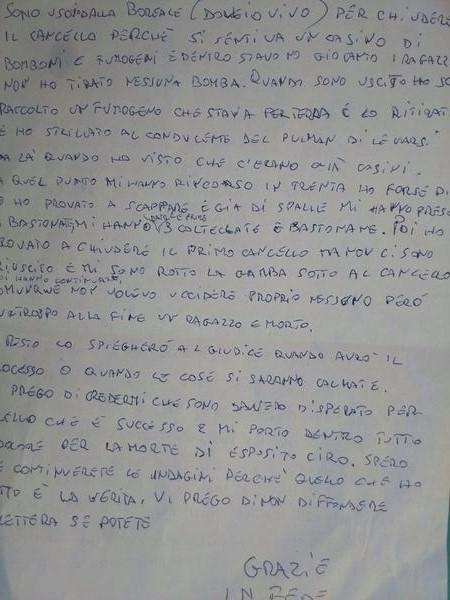 SONO USCITO DALLA BOREALE (DOVE IO VIVO) PER CHIUDERE
IL CANCELLO PERCHÈ SI SENTIVA UN CASINO DI
BOMBONI E FUMOGENI E DENTRO STAVANO GIOCANTO I RAGAZZI
NON HO TIRATO NESSUNA BOMBA. QUANDO SONO USCITO HO SO
RACCOLTO UN FUMOGENO CHE STAVA PER TERRA E LO RITIRAT
E HO STRILLATO AL CONDUCENTE DEL PULMAN DI LEVARSI
DA LÀ QUANDO HO VISTO CHE C'ERANO GIÀ CASINI.
A QUEL PUNTO MI HANNO RINCORSO IN TRENTA HO FORSE DI
IO HO PROVATO A SCAPPARE E GIÀ DI SPALLE MI HANNO PRESO
A BASTONATE MI HANNO 3 COLTELLATE E BASTONATE. POI HO
PROVATO A CHIUDERE IL PRIMO CANCELLO MA NON CI SONO
RIUSCITO E MI SONO ROTTO LA GAMBA SOTTO AL CANCELLO
COMUNQUE NON VOLEVO UCCIDERE PROPRIO NESSUNO PERÒ
PURTROPPO ALLA FINE UN RAGAZZO È MORTO.
RESTO LO SPIEGHERÒ AL GIUDICE QUANDO AVRÒ IL
PROCESSO O QUANDO LE COSE SI SARANNO CALMATE.
PREGO DI CREDERMI CHE SONO DAVVERO DISPERATO PER
QUELLO CHE È SUCCESSO E MI PORTO DENTRO TUTTO
DOLORE PER LA MORTE DI ESPOSITO CIRO. SPERO
E CONTINUERETE LE INDAGINI PERCHÈ QUELLO CHE HO
TTO È LA VERITÀ, VI PREGO DI NON DIFFONDERE
LETTERA SE POTETE
GRAZIE
IN FEDE